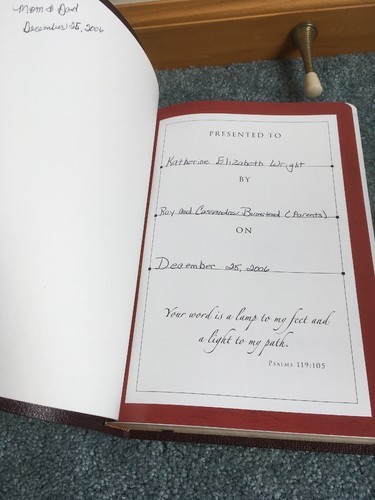 Mom & Dad
December 25, 2006
PRESENTED TO
Katherine Elizabeth Wright
BY
Roy and Cassandra Bumstead (Parents)
ON
December 25, 2006
Your word is a lamp to my feet and
a light to my path.
PSALMS 119:105